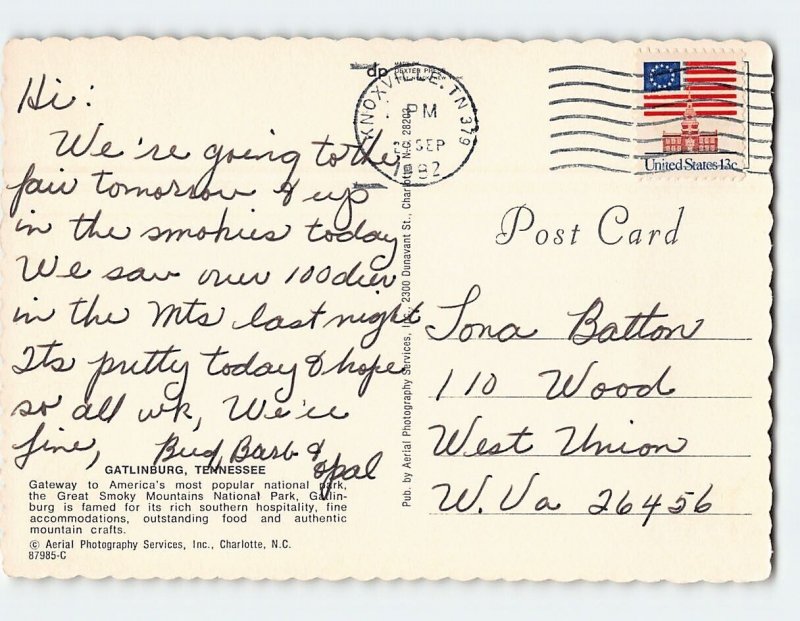 Hi:
We're going to the
fair tomorrow & up
in the smokies today
We saw over 100 deer
in the Mts last night
Its pretty today & hope
so all wk, We're
fine, Bud, Barb &
Opal
GATLINBURG, TENNESSEE
Gateway to America's most popular national park,
the Great Smoky Mountains National Park, Gatlin-
burg is famed for its rich southern hospitality, fine
accommodations, outstanding food and authentic
mountain crafts.
© Aerial Photography Services, Inc., Charlotte, N.C.
87985-C
dp
DEXTER PRESS
Pub. by Aerial Photography Services, Inc., 2300 Dunavant St., Charlotte N.C. 28203
KNOXVILLE, TN 379
PM
SEP
1982
United States 13c
Post Card
Iona Batton
110 Wood
West Union
W. Va 26456